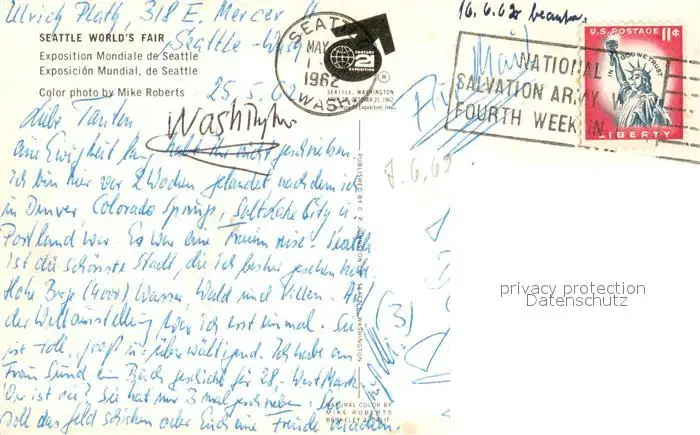 Ulrich Plath, 318 E. Mercer
Seattle Wash
SEATTLE WORLD'S FAIR
Exposition Mondiale de Seattle
Exposición Mundial, de Seattle
Color photo by Mike Roberts
SEATTLE
MAY
1962
WASH
CENTURY
21
EXPOSITION
SEATTLE, WASHINGTON
OCTOBER 21, 1962
16.6.62
U.S. POSTAGE 11¢
IN GOD WE TRUST
LIBERTY
NATIONAL
SALVATION ARMY
FOURTH WEEK IN
25.5.
Liebe Tanten
Washington
eine Ewigkeit lang geschrieben.
Ich bin hier vor 2 Wochen gelandet nachdem ich
in Denver Colorado Springs, Salt Lake City u.
Portland war. Es war eine Traumreise. Seattle
ist die schönste Stadt, die ich bisher gesehen
Hohe Berge (4000) Wasser, Wald und Villen. Auf
der Weltausstellung war ich erst einmal. Sie
ist toll, überwältigend. Ich habe an
Frau ein Buch geschickt für 28,- West Mark.
Wer ist sie? Sie hat mir 3 mal geschrieben. Sie
soll das Geld schicken oder Euch eine Freude machen.
8.6.62
(3)
PUBLISHED BY C. P. JOHNSTON CO., SEATTLE, WASHINGTON
NATURAL COLOR BY
MIKE ROBERTS
BERKELEY 2, CALIF
privacy protection
Datenschutz